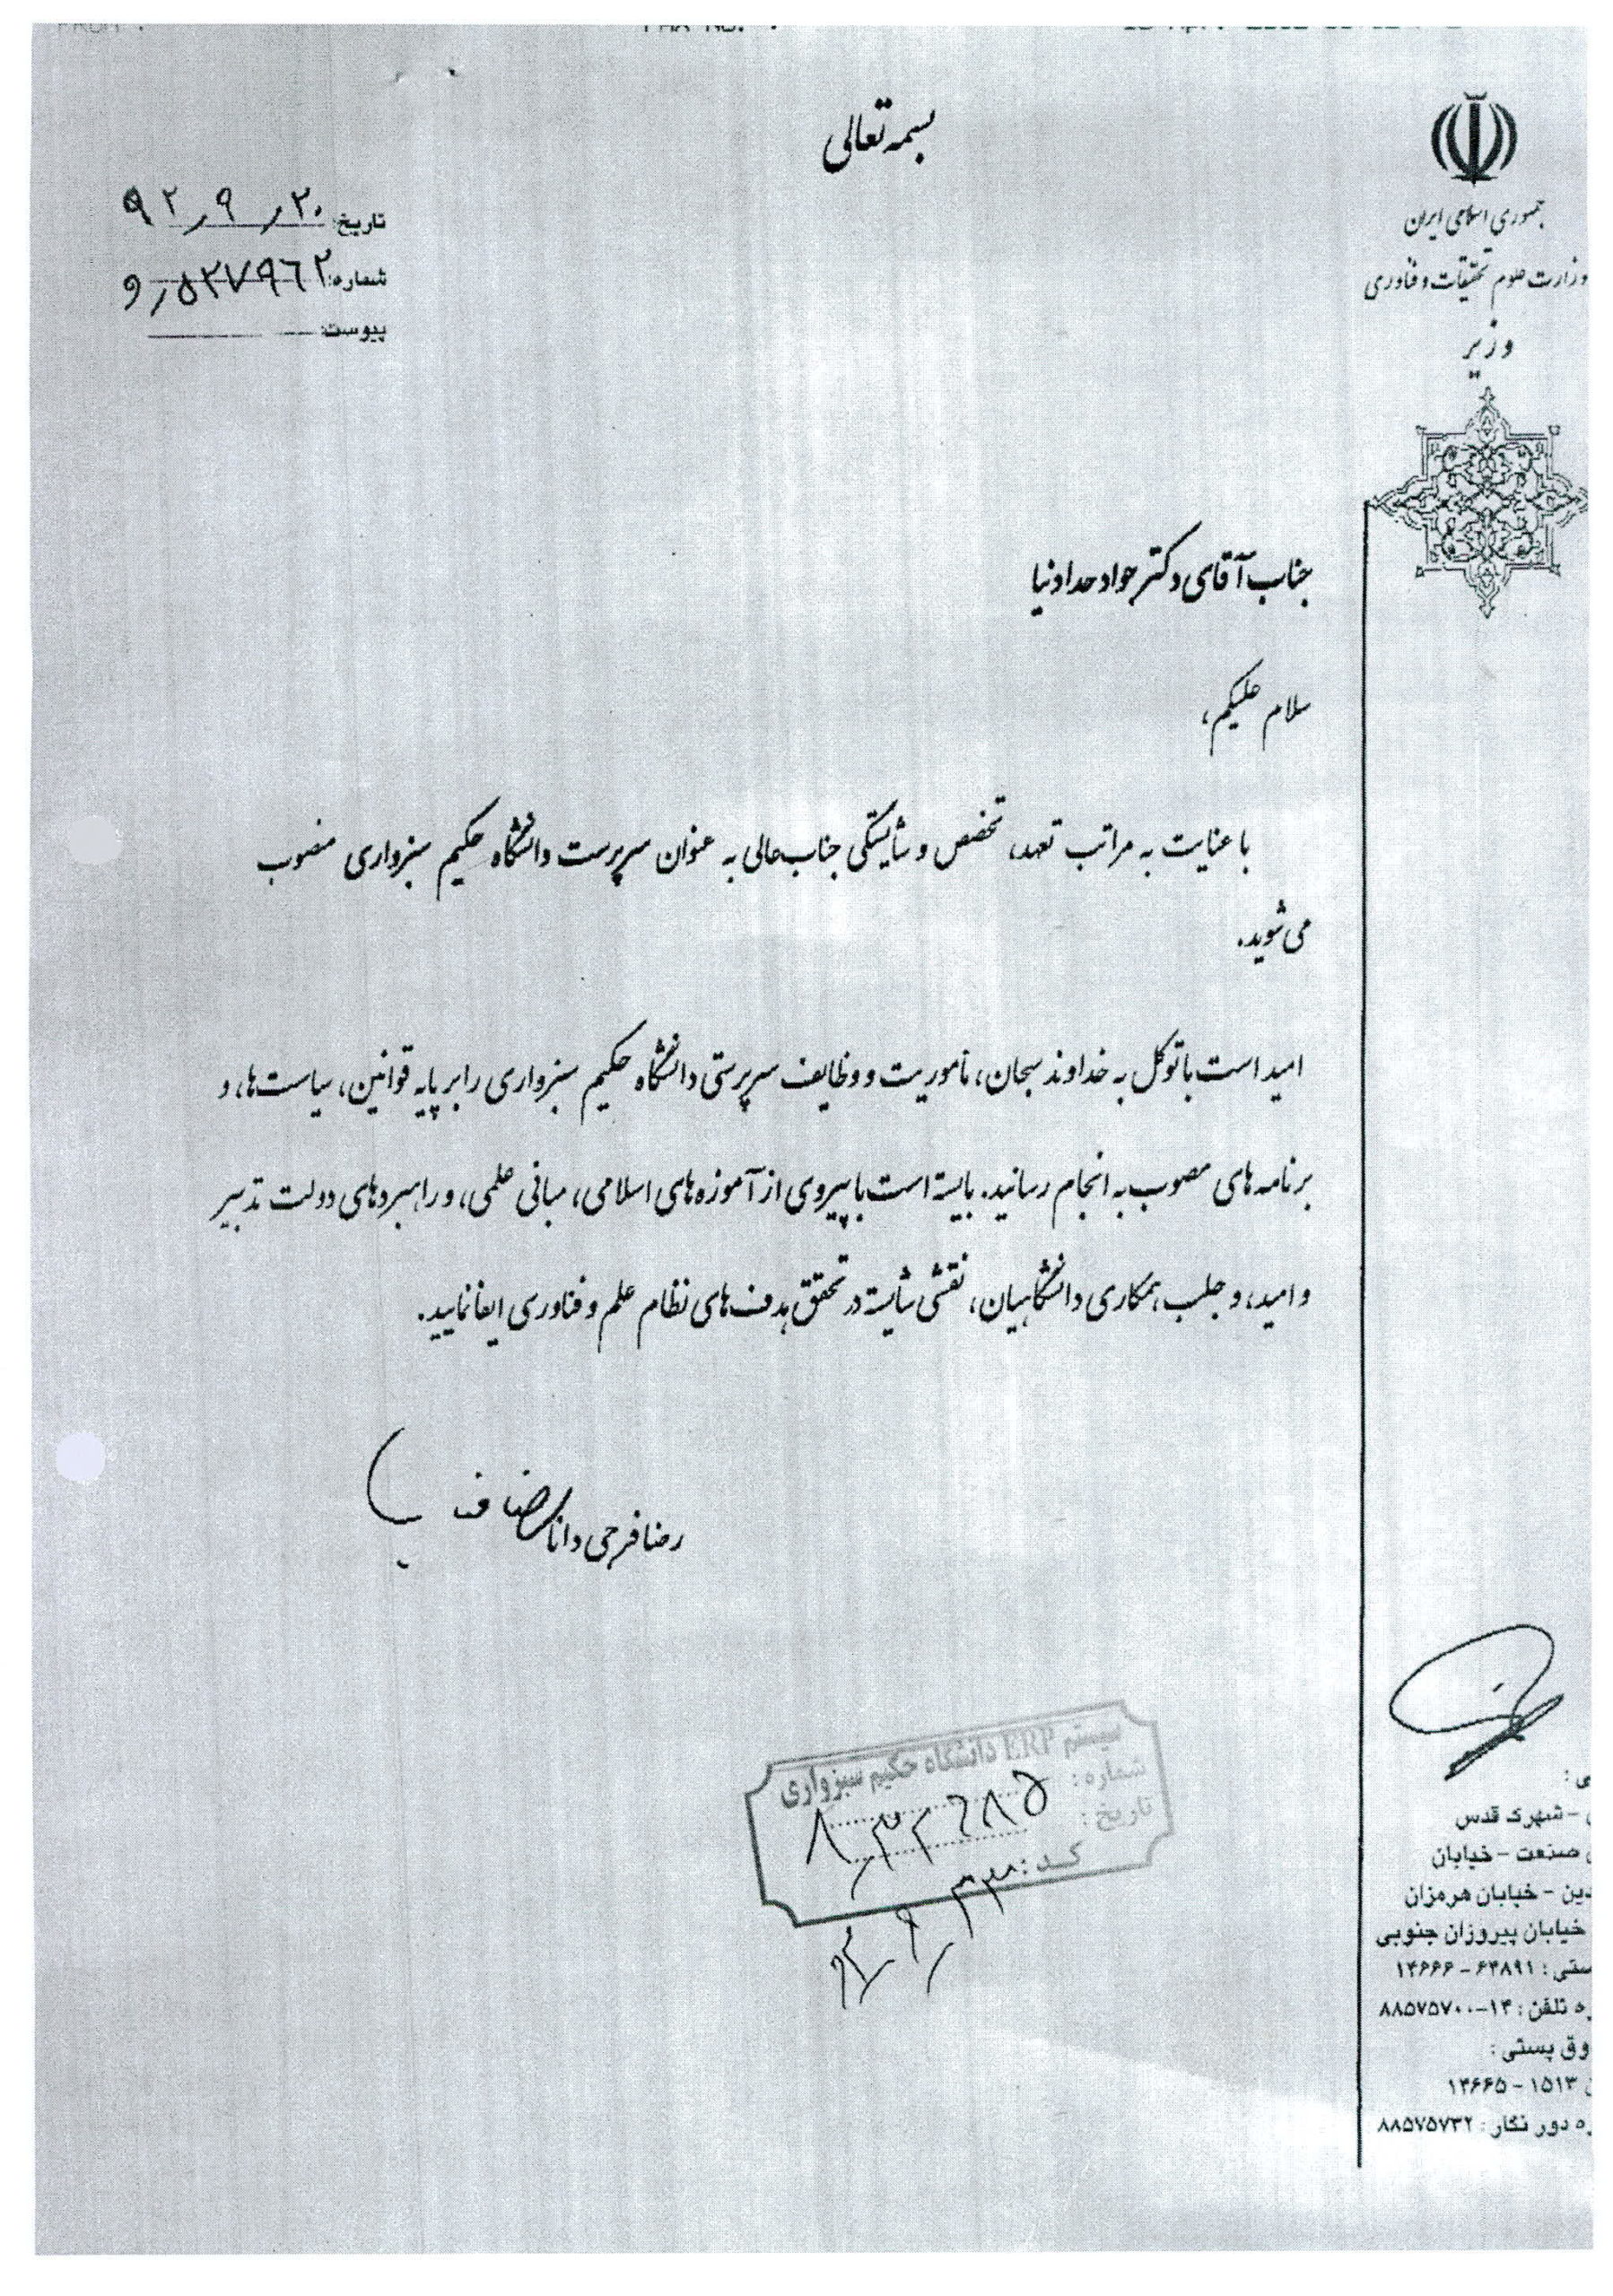 بسمه تعالی
جمهوری اسلامی ایران
وزارت علوم تحقیقات و فناوری
وزیر
تاریخ: ۹۲٫۹٫۲۰
شماره: و٫۵۲۷۹۶۲
پیوست:
جناب آقای دکتر جواد حدادنیا
سلام علیکم،
با عنایت به مراتب تعهد، تخصص و شایستگی جناب‌عالی به عنوان سرپرست دانشگاه حکیم سبزواری منصوب
می‌شوید.
امید است با توکل به خداوند سبحان، مأموریت و وظایف سرپرستی دانشگاه حکیم سبزواری را بر پایه قوانین، سیاست‌ها، و
برنامه‌های مصوب به انجام رسانید. بایسته است با پیروی از آموزه‌های اسلامی، مبانی علمی، و راهبردهای دولت تدبیر
و امید، و جلب همکاری دانشگاهیان، نقشی شایسته در تحقق هدف‌های نظام علم و فناوری ایفا نمایید.
رضا فرجی دانا
سیستم ERP دانشگاه حکیم سبزواری
شماره:
تاریخ:
کد:
- شهرک قدس
صنعت - خیابان
- خیابان هرمزان
خیابان پیروزان جنوبی
: ۶۴۸۹۱ - ۱۴۶۶۶
تلفن: ۱۴-۸۸۵۷۵۷۰۰
پستی:
۱۵۱۳ - ۱۴۶۶۵
دور نگار: ۸۸۵۷۵۷۳۲